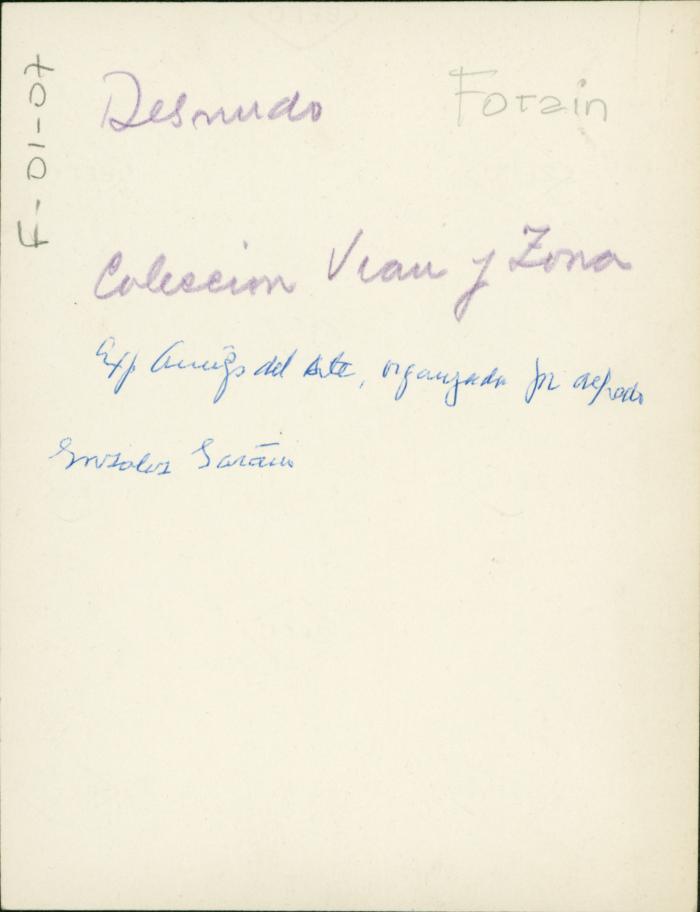 F-01-07
Desnudo Forain
Coleccion Viau y Zona
Exp Amigos del Arte, organizada por Alfredo
Gonzalez Garaño